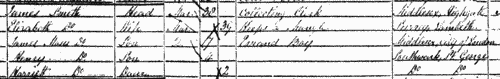 James Smith Head Mar 38 Collecting Clerk Middlesex, Highgate
Elizabeth Do Wife Mar 39 Keeps a Surrey Lambeth
James Do Son 7 Errand Boy Middlesex, City of London
Henry Do Son 4 Southwark, St George
Harriett Do Daur 2 Do Do